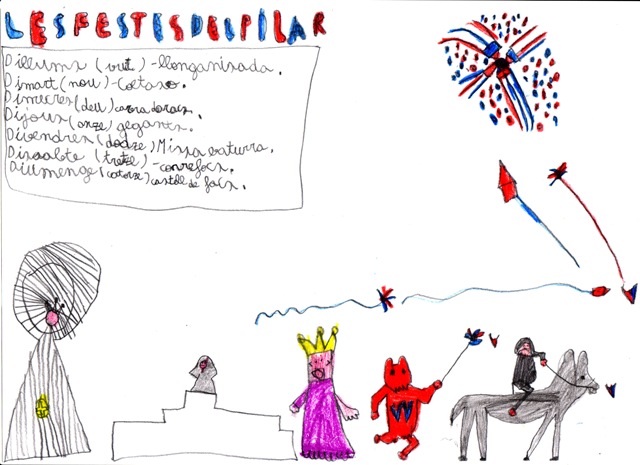 LES FESTES DEL PILAR
Dilluns (vuit) - llonganissada.
Dimart (nou) - Coetaso.
Dimecres (deu) carra doracs.
Dijous (onze) gegants.
Divendres (dodze) Missa baturra.
Dissabte (tretze) - correfocs.
Diumenge (catorze) castell de focs.